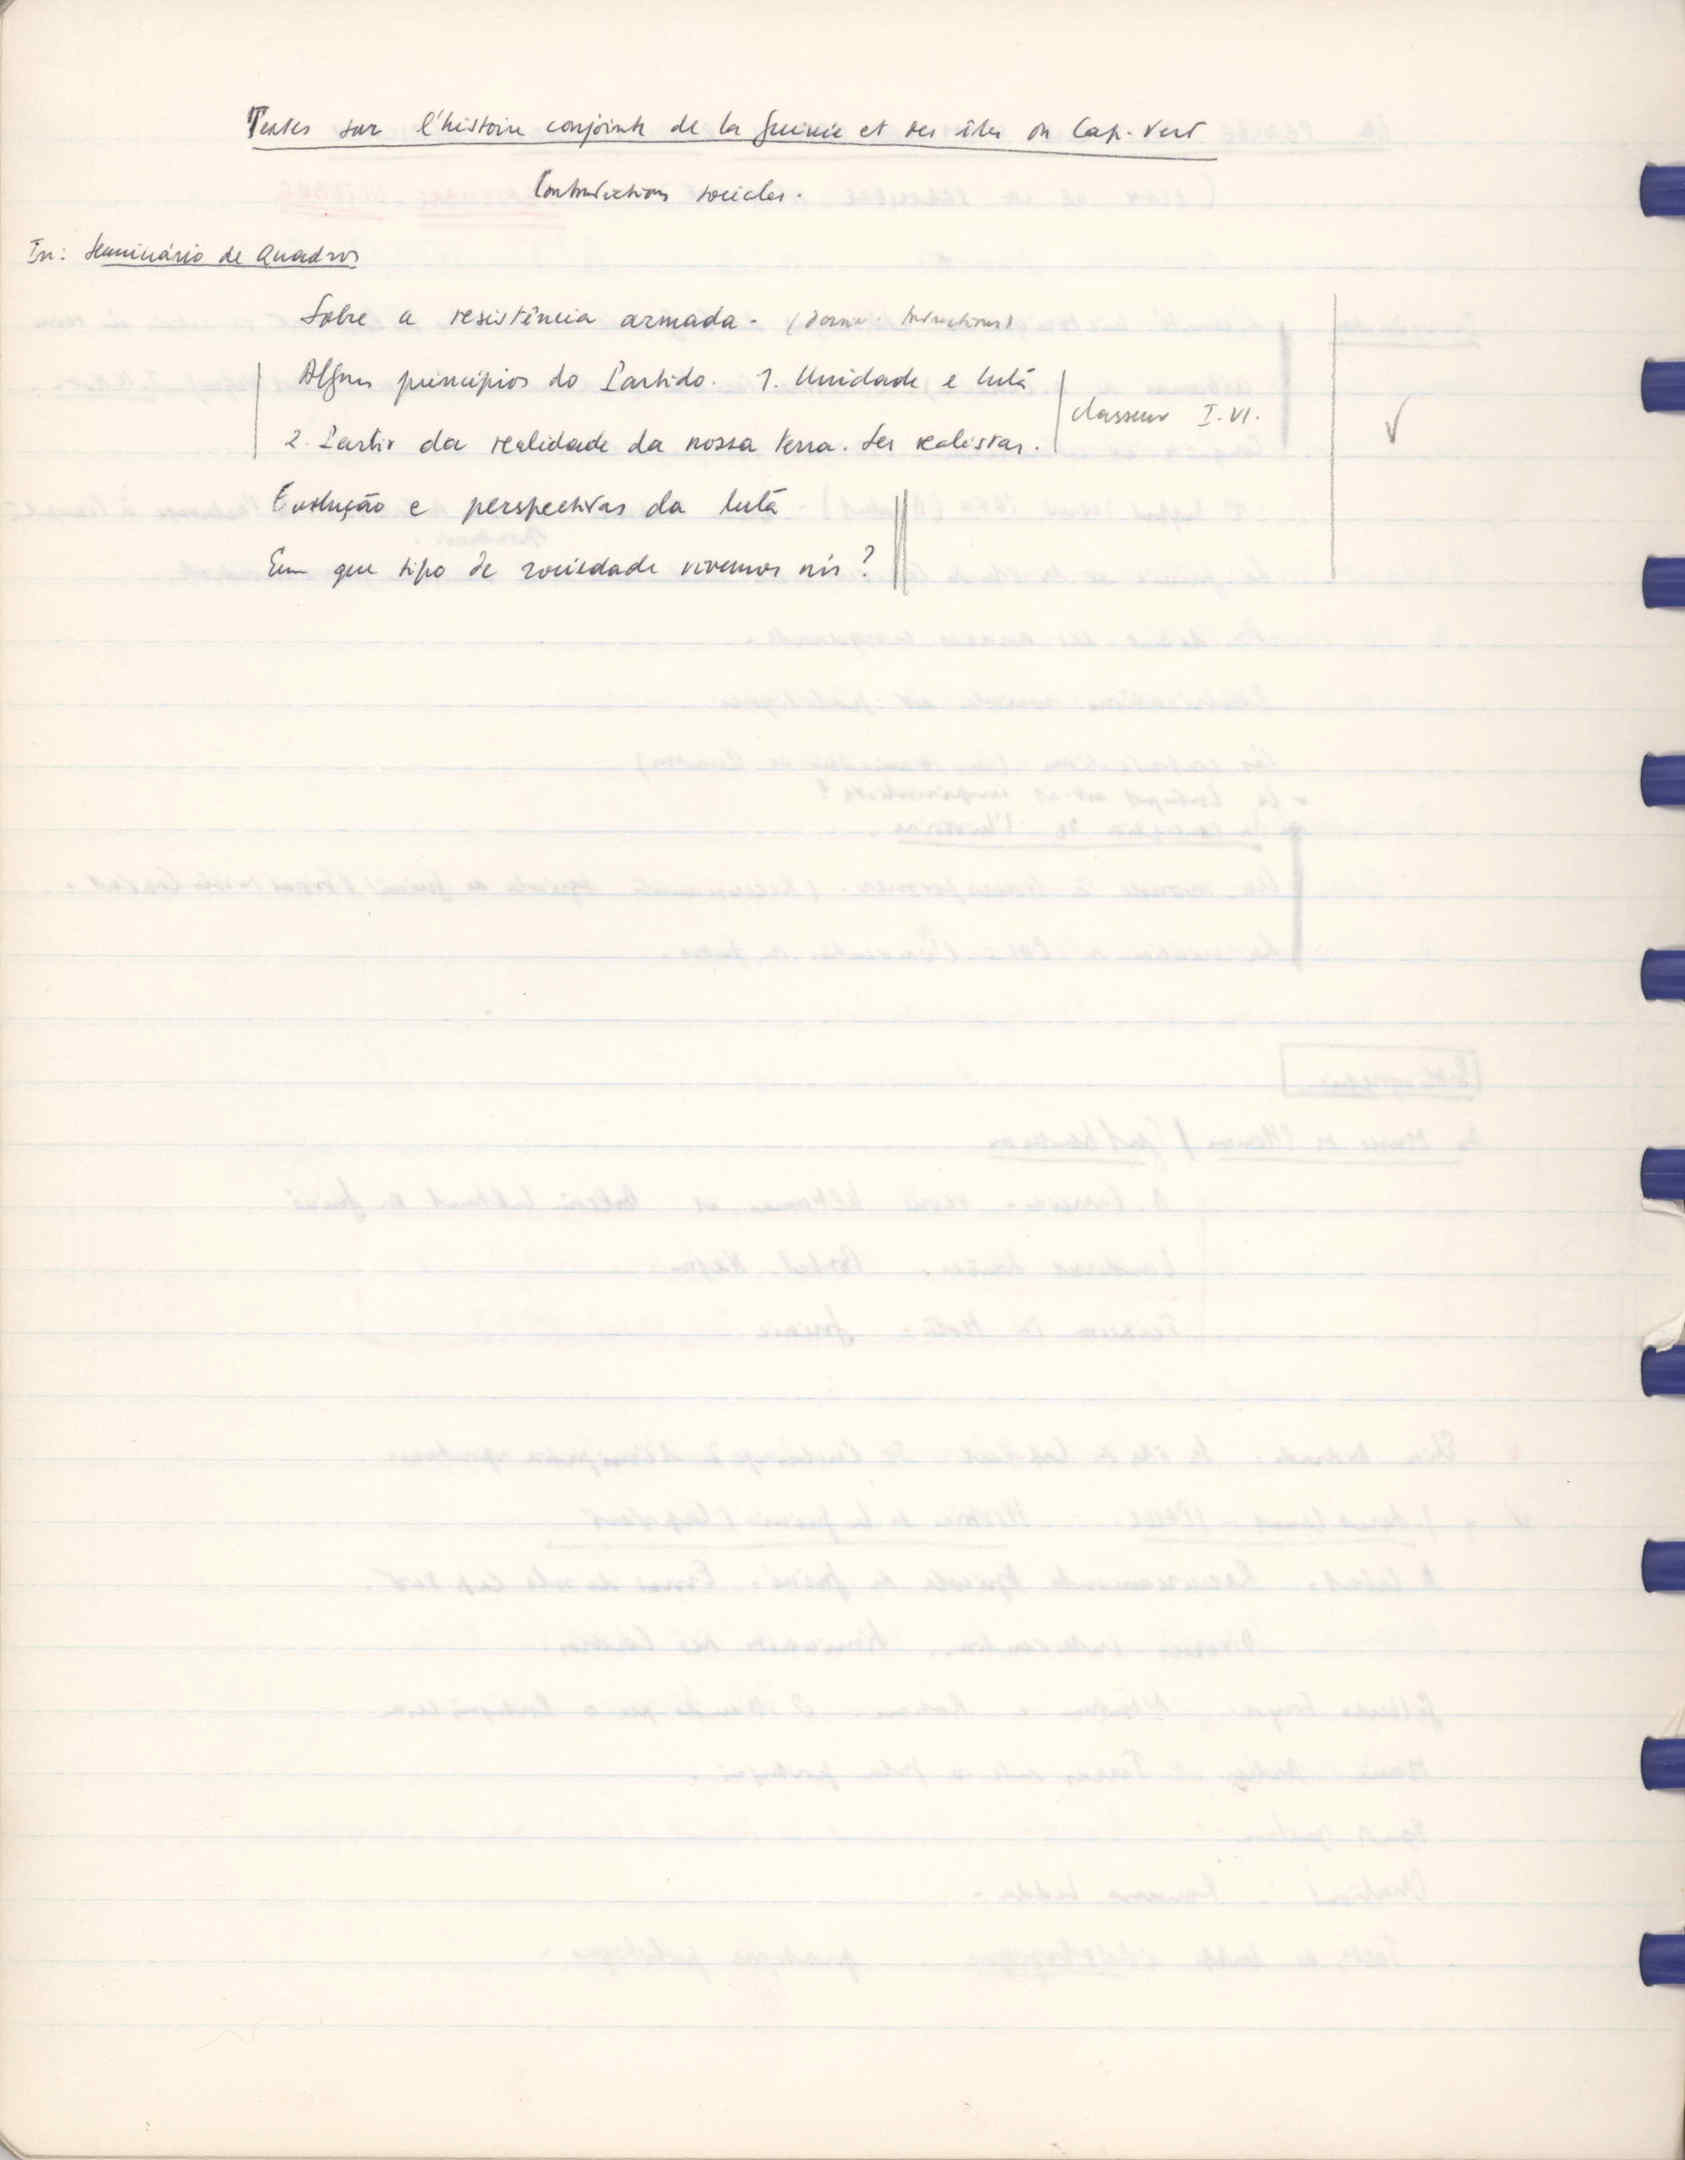 Textes sur l'histoire conjointe de la Guinée et des îles du Cap-Vert
Contradictions sociales.
In: Seminário de Quadros
Sobre a resistência armada.
Alguns princípios do Partido. 1. Unidade e luta
classeur I.VI.
2. Partir da realidade da nossa terra. Ser realistas.
Evolução e perspectivas da luta
Em que tipo de sociedade vivemos nós?